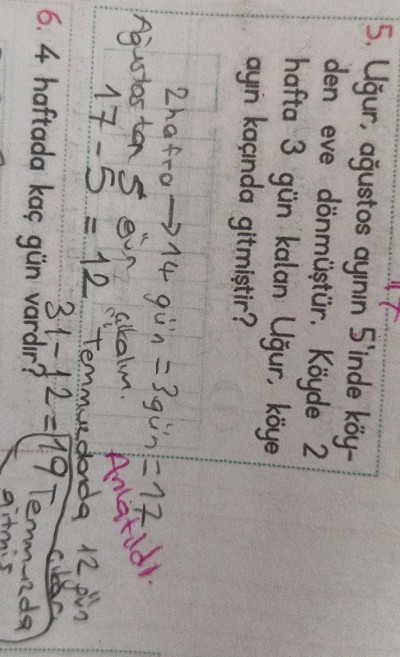 17
5. Uğur, ağustos ayının 5'inde köy-
den eve dönmüştür. Köyde 2
hafta 3 gün kalan Uğur, köye
ayın kaçında gitmiştir?
2 hafta → 14 gün = 3 gün = 17
Ağustostan 5 gün çıkalım. Anlatıldı.
17 - 5 = 12 Temmuzdanda 12 gün
31 - 12 = 19 Temmuzda
gitmiş
6. 4 haftada kaç gün vardır?